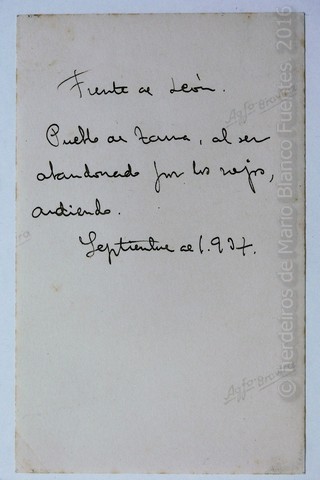 Frente de León.
Pueblo de Tarna, al ser
abandonado por los rojos,
ardiendo.
Septiembre de 1.937.
© herdeiros de Mario Blanco Fuentes, 2016